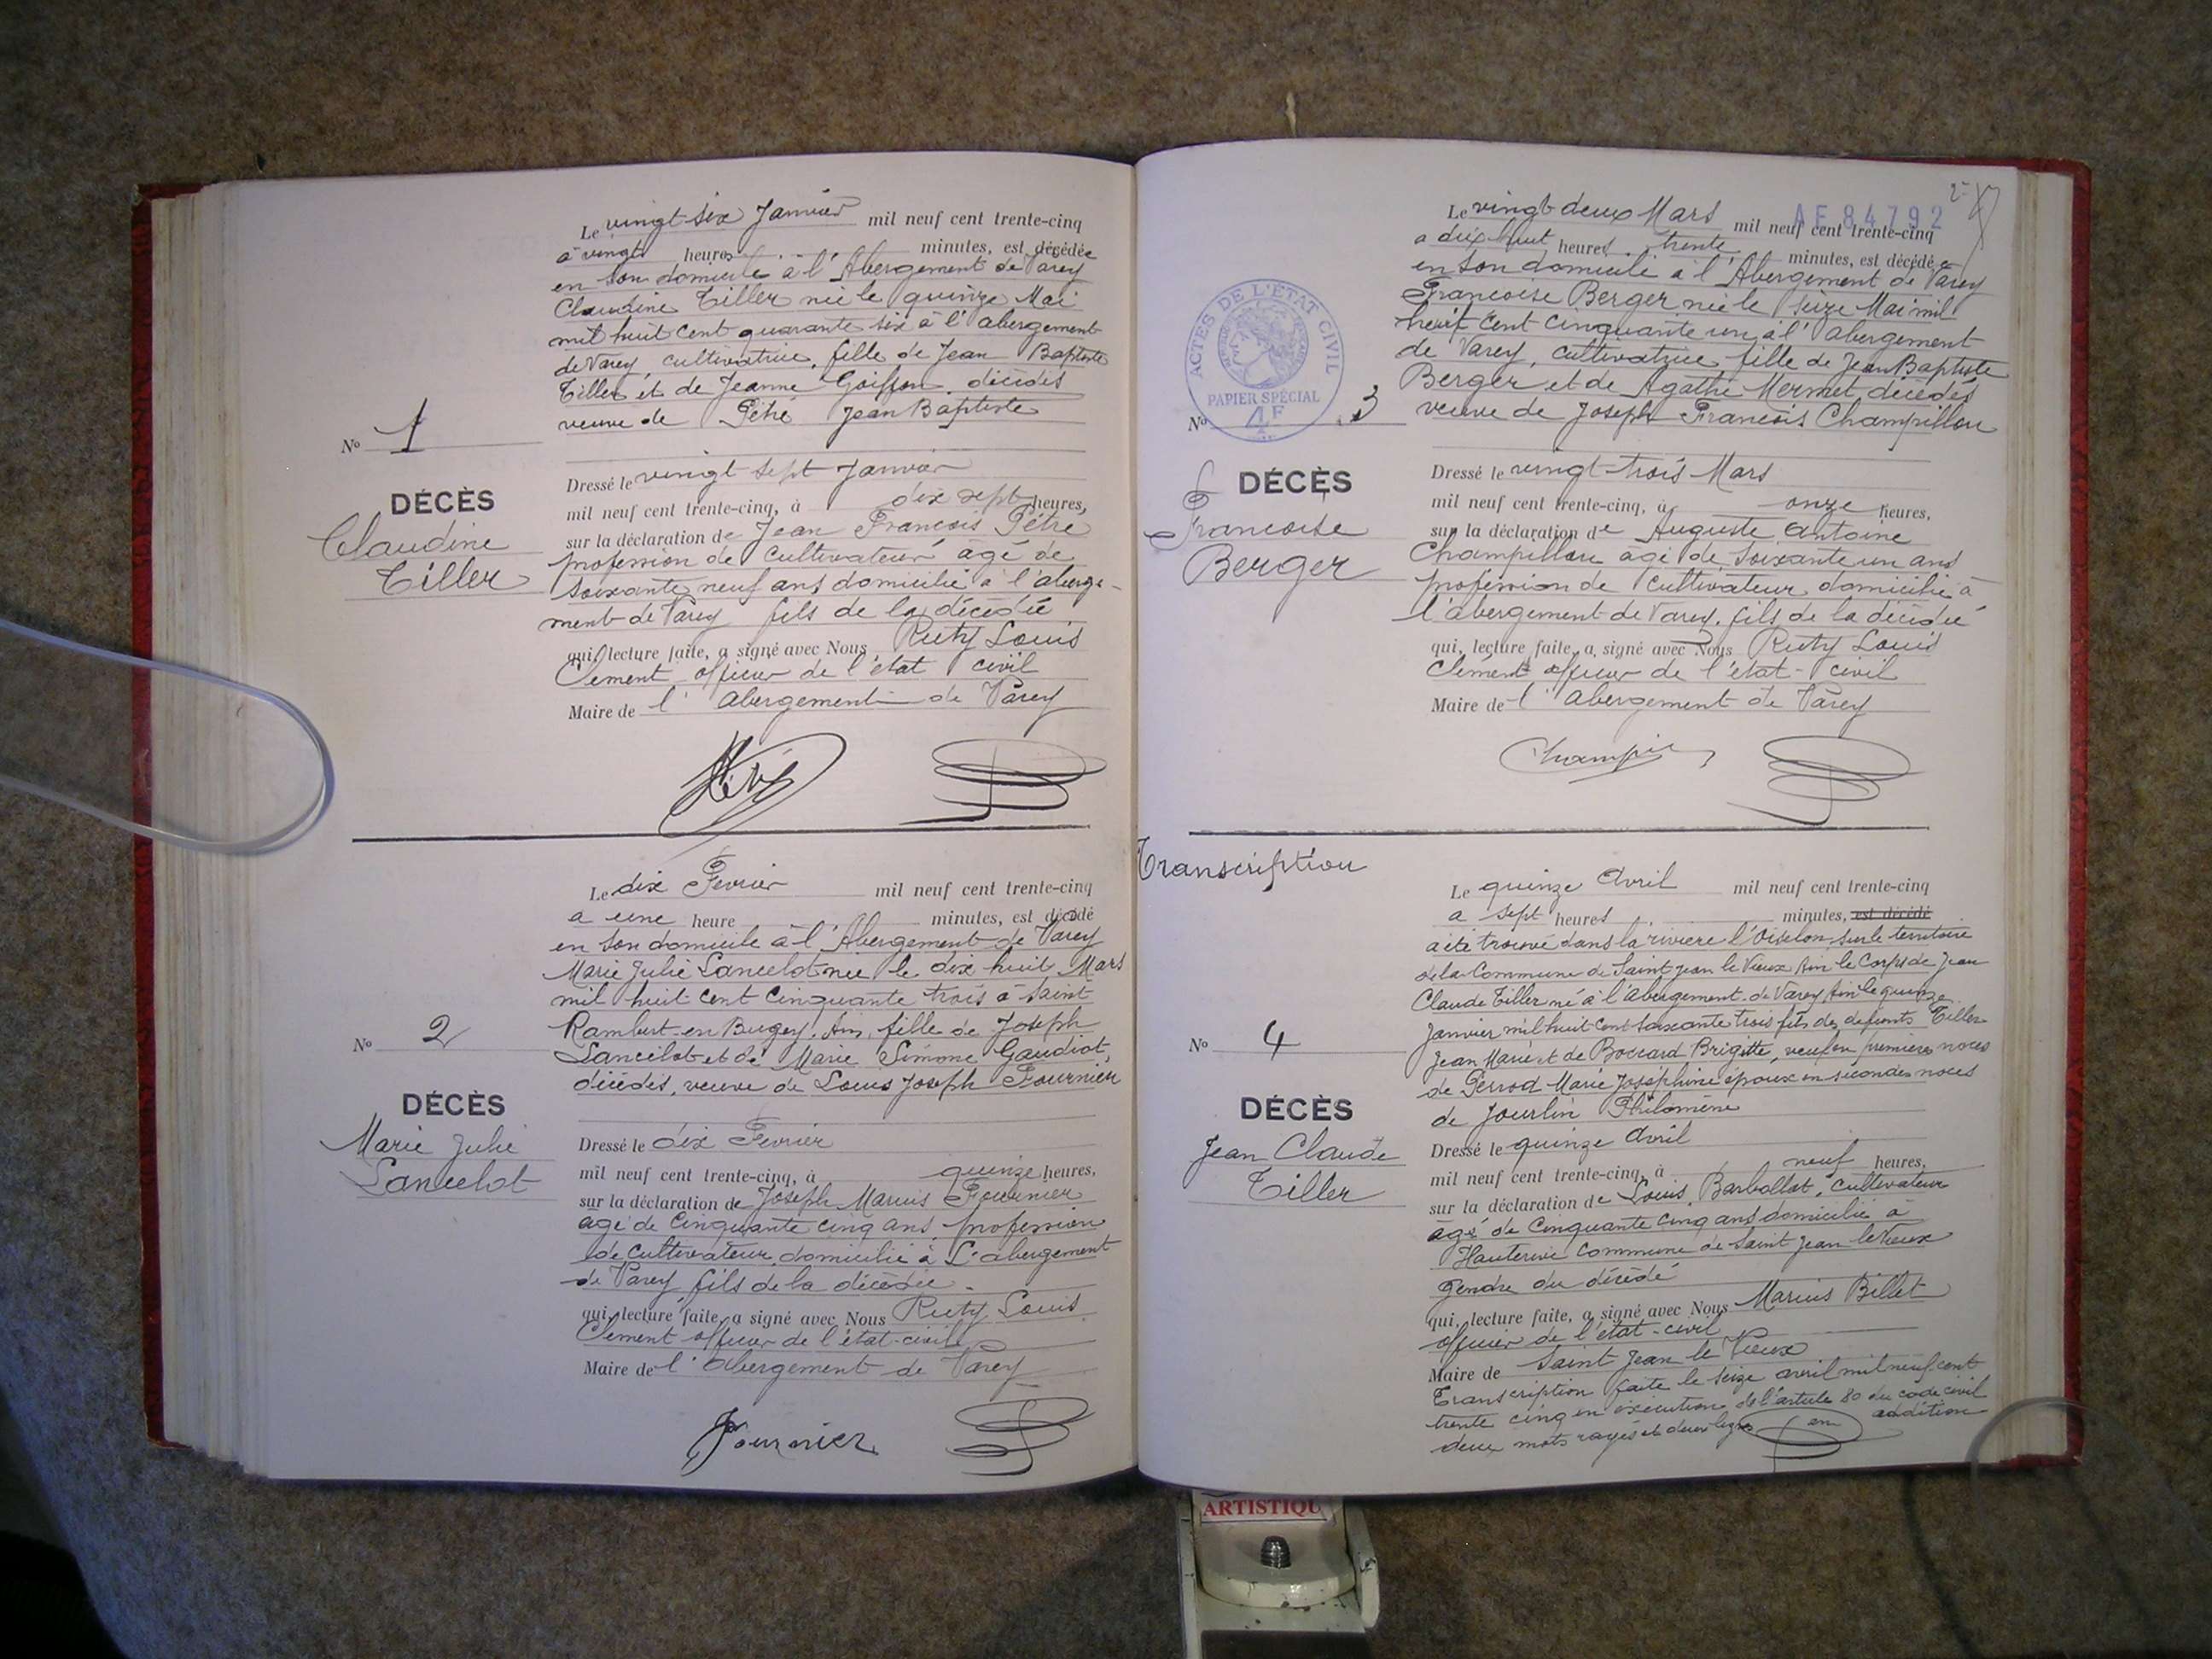 Le vingt-six Janvier mil neuf cent trente-cinq
à vingt heures minutes, est décédée
en son domicile à l'Abergement de Varey
Claudine Tiller née le quinze Mai
mil huit cent quarante six à l'abergement
de Varey, cultivatrice, fille de Jean Baptiste
Tiller et de Jeanne Goiffon décédés
veuve de Pétré Jean Baptiste
No 1
DÉCÈS
Claudine
Tiller
Dressé le vingt sept Janvier
mil neuf cent trente-cinq, à dix sept heures,
sur la déclaration de Jean François Pétre
profession de cultivateur âgé de
soixante neuf ans domicilié à l'aberge-
ment de Varey fils de la décédée
qui, lecture faite, a signé avec Nous Ruty Louis
Clément officier de l'état civil
Maire de l'abergement de Varey
Le dix Fevrier mil neuf cent trente-cinq
a une heure minutes, est décédé
en son domicile à l'Abergement de Varey
Marie Julie Lancelot née le dix huit Mars
mil huit cent cinquante trois à Saint
Rambert-en-Bugey, Ain, fille de Joseph
Lancelot et de Marie Simone Gaudiot,
décédés, veuve de Louis Joseph Fournier
No 2
DÉCÈS
Marie Julie
Lancelot
Dressé le dix Fevrier
mil neuf cent trente-cinq, à quinze heures,
sur la déclaration de Joseph Marius Fournier
âgé de cinquante cinq ans, profession
de cultivateur, domicilié à L'abergement
de Varey fils de la décédée.
qui, lecture faite, a signé avec Nous Ruty Louis
Clément officier de l'état-civil
Maire de l'abergement de Varey
Fournier
2
AE 84792
Le vingt deux Mars mil neuf cent trente-cinq
a dix huit heures trente minutes, est décédé e
en son domicile à l'Abergement de Varey
Françoise Berger née le seize Mai mil
huit cent cinquante un à l'abergement
de Varey, cultivatrice, fille de Jean Baptiste
Berger et de Agathe Mermet, décédés
veuve de Joseph François Champillon
ACTES DE L'ÉTAT CIVIL
PAPIER SPÉCIAL
4F
No 3
DÉCÈS
Françoise
Berger
Dressé le vingt-trois Mars
mil neuf cent trente-cinq, à onze heures,
sur la déclaration de Auguste Antoine
Champillon âgé de soixante un ans
profession de cultivateur domicilié à
l'abergement de Varey. fils de la décédée
qui, lecture faite, a signé avec Nous Ruty Louis
Clément officier de l'état-civil
Maire de l'abergement de Varey
Transcription
Le quinze Avril mil neuf cent trente-cinq
a sept heures minutes, est décédé
a été trouvé dans la rivière l'Oiselon sur le territoire
de la Commune de Saint Jean le Vieux Ain le Corps de Jean
Claude Tiller né à l'Abergement de Varey Ain le quinze
Janvier mil huit cent soixante trois fils des defunts Tiller
Jean Marie et de Boccard Brigitte, veuf en premieres noces
de Perrod Marie Joséphine époux en secondes noces
de Jourlin Philomène
No 4
DÉCÈS
Jean Claude
Tiller
Dressé le quinze Avril
mil neuf cent trente-cinq, à neuf heures,
sur la déclaration de Louis Barbollat, cultivateur
âgé de cinquante cinq ans domicilié à
Hauterive commune de Saint Jean le Vieux
gendre du décédé
qui, lecture faite, a signé avec Nous Marius Billet
officier de l'état-civil
Maire de Saint Jean le Vieux
Transcription faite le seize avril mil neuf cent
trente cinq en exécution de l'article 80 du code civil
deux mots rayés et deux lignes en addition
ARTISTIQU